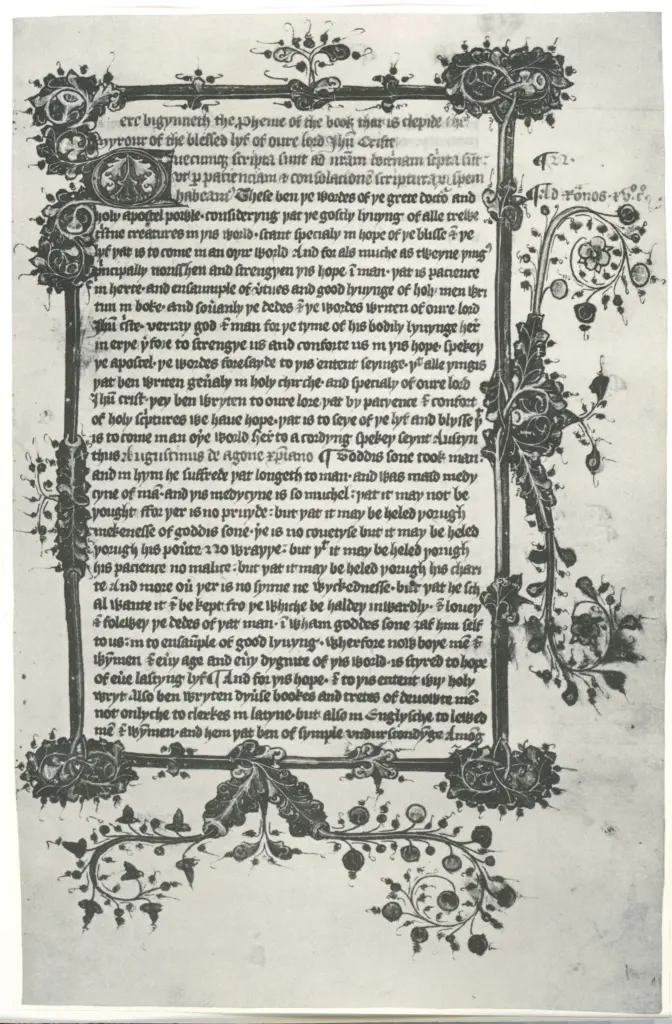 ere bigynneth the pheme of the book that is clepide the
Myrour of the blessed lyf of oure lord Jhu Criste
Quecunq scripta sunt ad nram doctrinam scpta sut:
vt p pacienciam & consolacione scripturar spem
habeant These ben ye wordes of ye grete doctor and
holy apostel powle· consideryng yat ye gostly lyuyng of alle trewe
cristne creatures in yis world· stant specialy in hope of ye blisse & ye
lyf yat is to come in an oyre world And for als muche as tweyne yingis
principally norisshen and strengyen yis hope i man· yat is pacience
in herte· and ensaumple of vtues and good lyuynge of holy men wri
tun in boke· and souanly ye dedes & ye wordes writen of oure lord
Jhu cste· verray god & man for ye tyme of his bodily lyuynge her
in erye yfore to strengye us and conforte us in yis hope· spekey
ye apostel· ye wordes foresayde to yis entent seyinge· yt alle yingis
yat ben writen genaly in holy chirche· and specialy of oure lord
Jhu crist· yey ben wryten to oure lore yat by patyence & confort
of holy scptures we haue hope· yat is to seye of ye lyf and blysse yt
is to come in an oye world Her to acordyng spekey seynt Austyn
thus Augustinus de agone xpiano ¶ Goddis sone took man:
and in hym he suffrede yat longeth to man· and was maad medy
cyne of ma· and yis medycyne is so muchel: yat it may not be
yought ffor yer is no pruyde: but yat it may be heled yorugh
mekenesse of goddis sone· ye is no couetyse but it may be heled
yorugh his poute no wrappe: but yt it may be heled yorugh
his pacience no malice: but yat it may be heled yorugh his chari
te And more ou yer is no synne ne wyckednesse· but yat he sch
al wante it & be kept fro ye whiche be haldey inwardly· & louey
& folewey ye dedes of yat man· i wham goddes sone zaf him self
to us: in to ensauple of good lyuyng· Wherfore now boye me &
wymen & euy age and euy dygnite of yis world· is styred to hope
of eue lastyng lyf ¶ And for yis hope· & to yis entent wiy holy
wryt Also ben wryten dyuse bookes and tretes of deuowte me·
not onlyche to clerkes in latyne· but also in Englysche to lewed
me & wymen· and hem yat ben of symple vndurstondyge Amog
¶ Ad Romos xv° c°